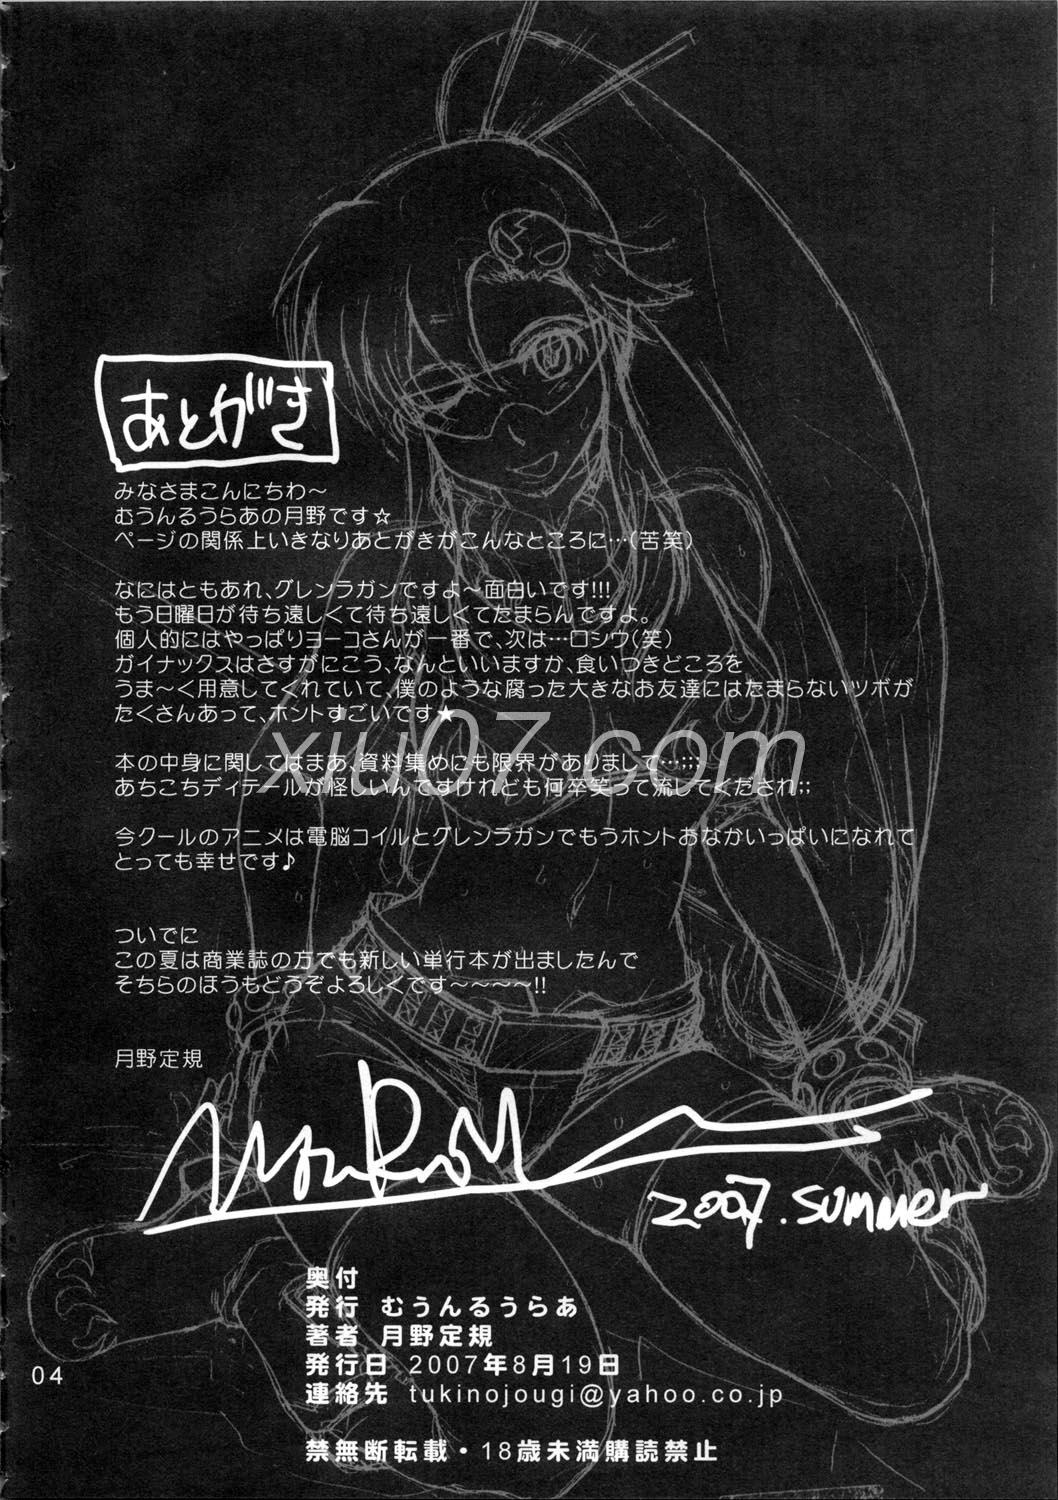 あとがき
みなさまこんにちわ～
むうんるうらあの月野です☆
ページの関係上いきなりあとがきがこんなところに…(苦笑)
なにはともあれ、グレンラガンですよ～面白いです!!!
もう日曜日が待ち遠しくて待ち遠しくてたまらんですよ。
個人的にはやっぱりヨーコさんが一番で、次は…ロシウ(笑)
ガイナックスはさすがにこう、なんといいますか、食いつきどころを
うま～く用意してくれていて、僕のような腐った大きなお友達にはたまらないツボが
たくさんあって、ホントすごいです★
xiu07.com
本の中身に関してはまあ、資料集めにも限界がありまして…;;;
あちこちディテールが怪しいんですけれども何卒笑って流してくだされ;;
今クールのアニメは電脳コイルとグレンラガンでもうホントおなかいっぱいになれて
とっても幸せです♪
ついでに
この夏は商業誌の方でも新しい単行本が出ましたんで
そちらのほうもどうぞよろしくです～～～～!!
月野定規
2007.summer
奥付
発行 むうんるうらあ
著者 月野定規
発行日 2007年8月19日
連絡先 tukinojougi@yahoo.co.jp
04
禁無断転載・18歳未満購読禁止